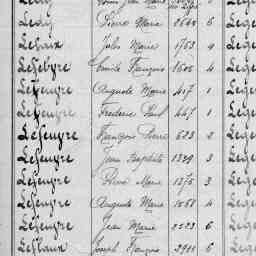 Louis Jean Marie
Leroy Pierre Marie 2668 6 Lege
Leroux Jules Marie 1763 4 Lege
Lefebvre Emile François 1606 4 Lege
Lefeuvre Auguste Marie 417 1 Lege
Lefeuvre Frédéric Paul 447 1 Lege
Lefeuvre François Pierre 623 2 Lege
Lefeuvre Jean Baptiste 1329 3 Lege
Lefeuvre Pierre Marie 1375 3 Lege
Lefeuvre Auguste Marie 1568 4 Lege
Lefeuvre Jean Marie 2523 6 Lege
Leflaux Joseph François 2911 6 Lege